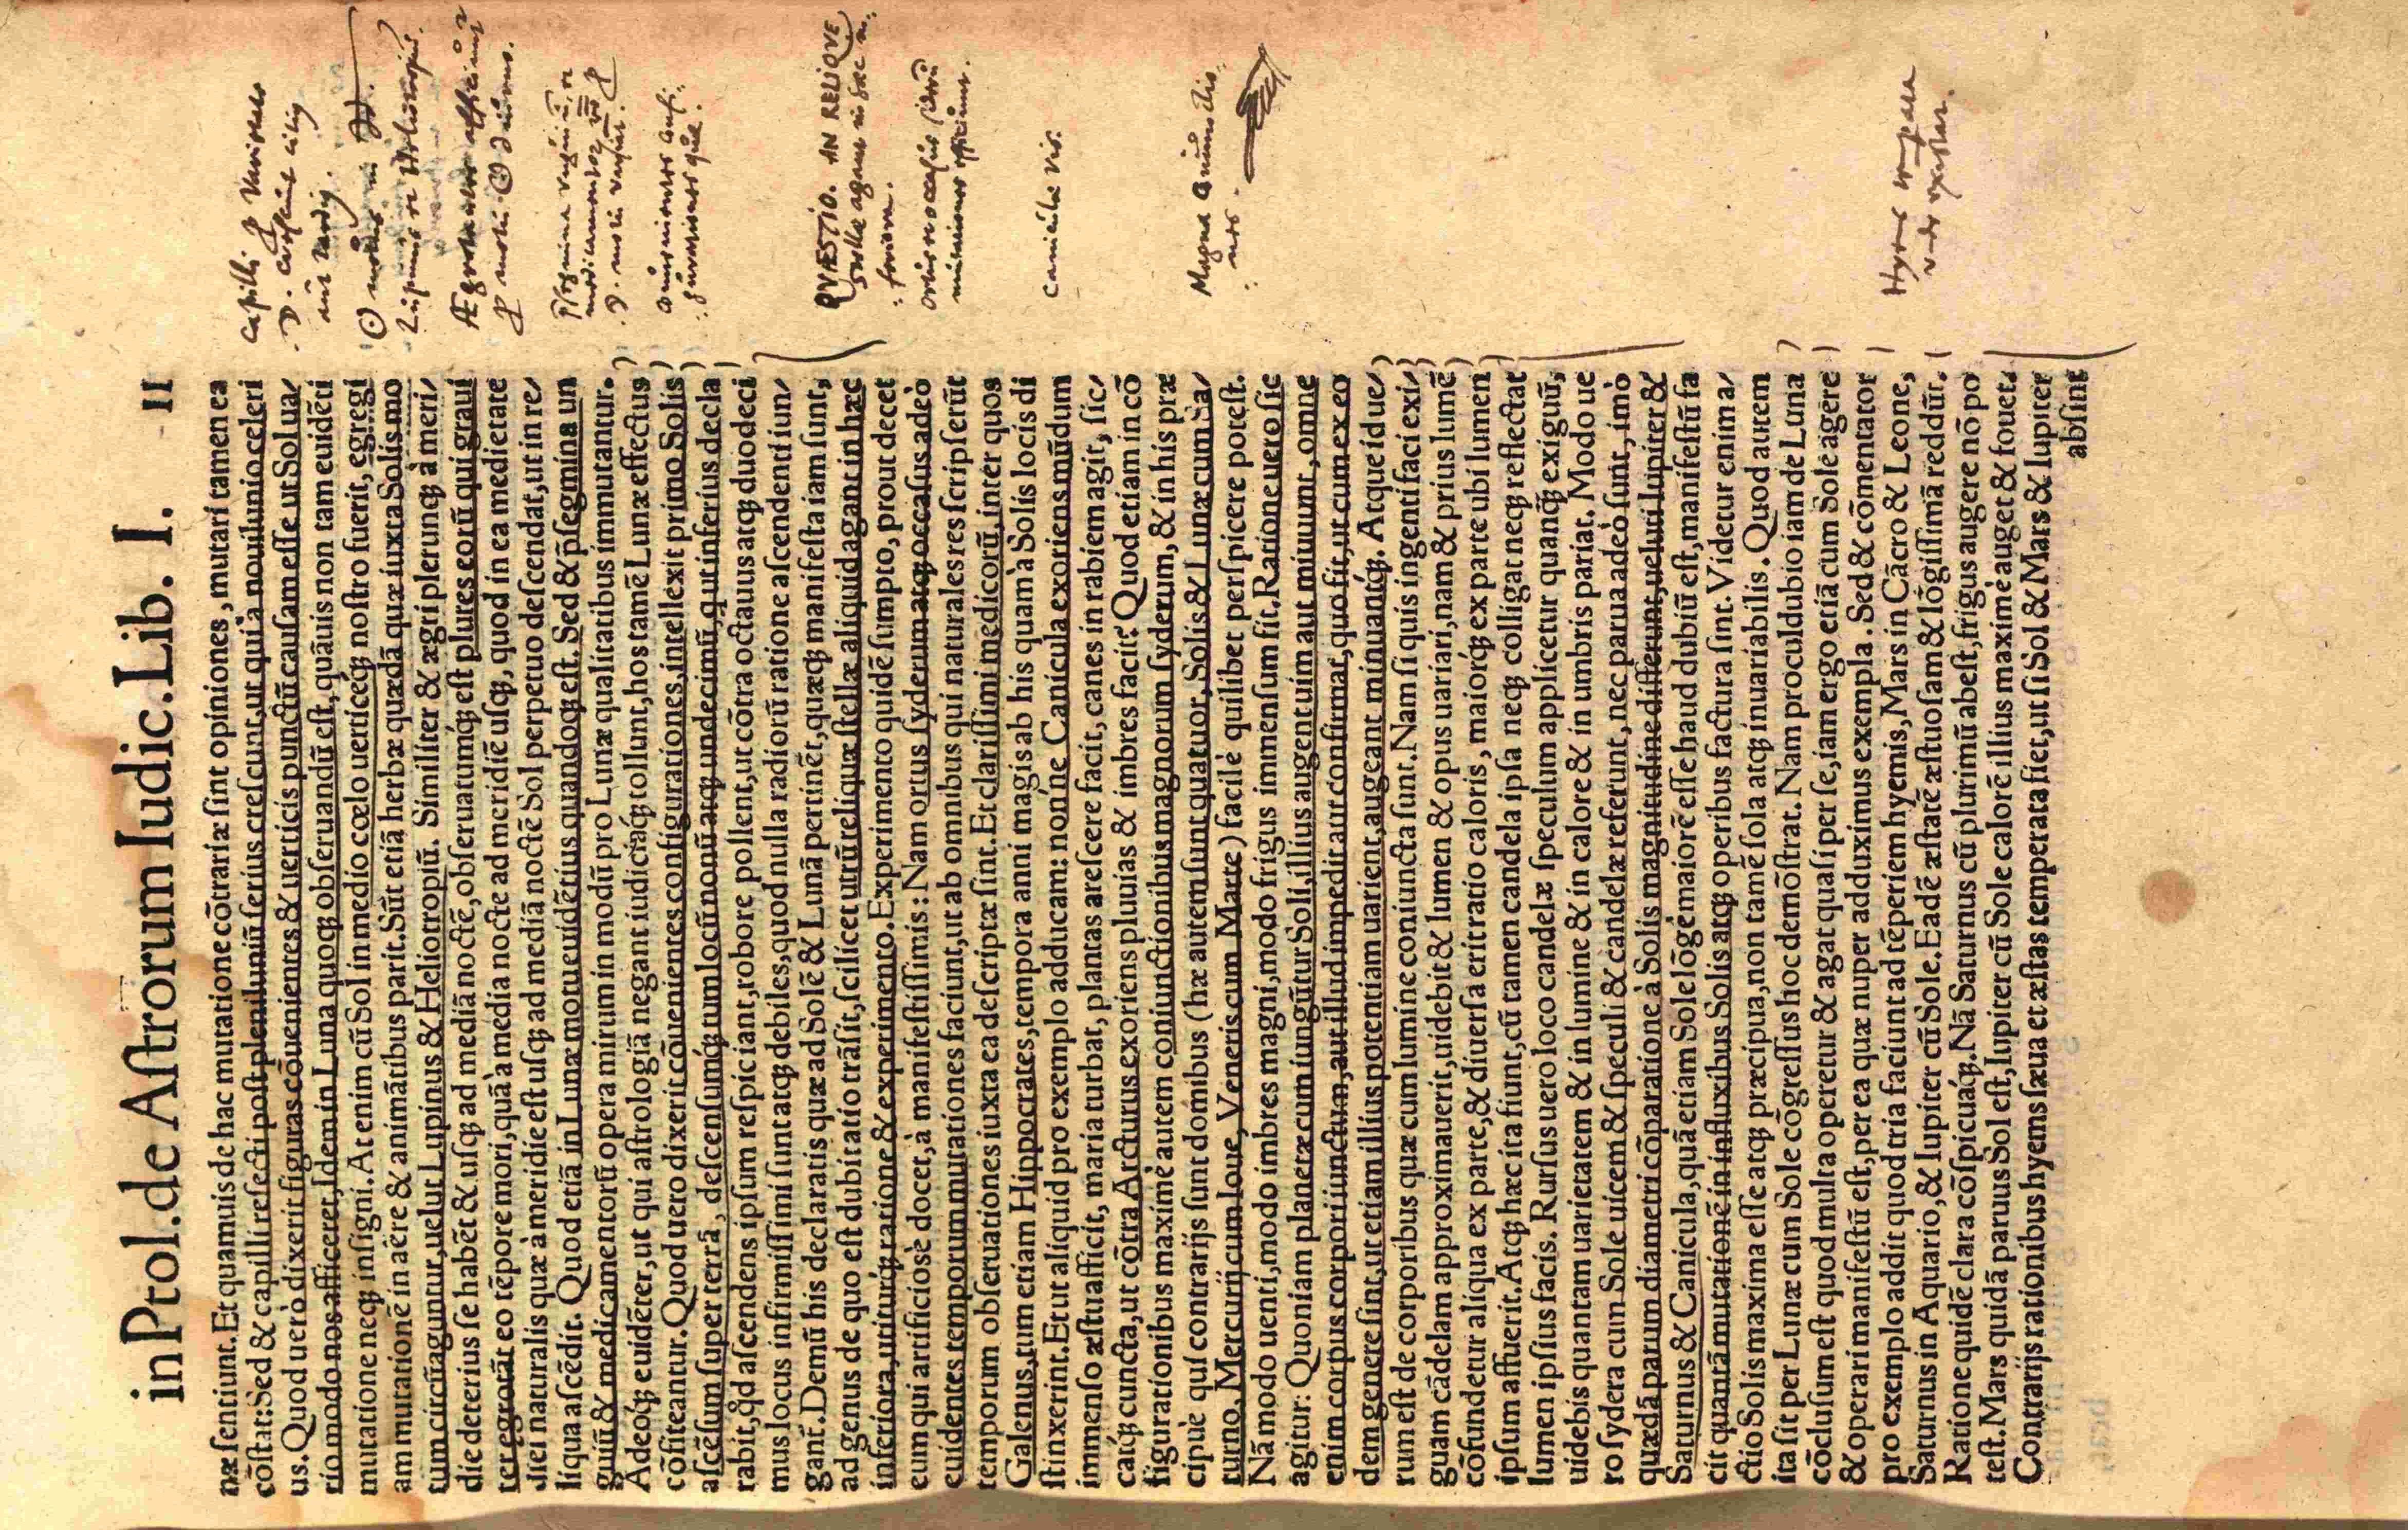 in Ptol. de Aſtrorum Iudic. Lib. I. 11
næ ſentiunt. Et quamuis de hac mutatione cōtrariæ ſint opiniones, mutari tamen ea
cōſtat: Sed & capilli reſecti poſt pleniluniũ ſerius creſcunt, ut qui à nouilunio celeri
us. Quod uerò dixerit figuras cōuenientes & uerticis punctũ cauſam eſſe ut Sol ua/
rio modo nos afficeret, Idem in Luna quoqꝫ obſeruandũ eſt, quãuis non tam euidẽti
mutatione neqꝫ inſigni. At enim cũ Sol in medio cœlo uerticeqꝫ noſtro fuerit, egregi
am mutationẽ in aëre & animãtibus parit. Sũt etiã herbæ quædã quæ iuxta Solis mo
tum circũaguntur, uelut Lupinus & Heliotropiũ. Similiter & ægri plerunqꝫ à meri/
die deterius ſe habẽt & uſqꝫ ad mediã noctẽ, obſeruatumqꝫ eſt plures eorũ qui graui
ter egrotãt eo tẽpore mori, quã à media nocte ad meridiẽ uſqꝫ, quod in ea medietate
diei naturalis quæ à meridie eſt uſqꝫ ad mediã noctẽ Sol perpetuo deſcendat, ut in re/
liqua aſcẽdit. Quod etiã in Lunæ motu euidẽtius quandoqꝫ eſt. Sed & p̃ſegmina un
guiũ & medicamentorũ opera mirum in modũ pro Lunæ qualitatibus immutantur.
Adeoqꝫ euidẽter, ut qui aſtrologiã negant iudiciáqꝫ tollunt, hos tamẽ Lunæ effectus
cōfiteantur. Quod uero dixerit cōuenientes configurationes, intellexit primo Solis
aſcẽſum ſuper terrã, deſcenſumqꝫ tum locũ nonũ atqꝫ undecimũ, q̃ ut inferius decla
rabit, q̃d aſcendens ipſum reſpiciant, robore pollent, ut cōtra octauus atqꝫ duodeci
mus locus infirmiſſimi ſunt atqꝫ debiles, quod nulla radiorũ ratione aſcendenti iun/
gant. Demũ his declaratis quæ ad Solẽ & Lunã pertinẽt, quæqꝫ manifeſta iam ſunt,
ad genus de quo eſt dubitatio trãſit, ſcilicet utrũ reliquæ ſtellæ aliquid agant in hæc
inferiora, utiturqꝫ ratione & experimento. Experimento quidẽ ſumpto, prout decet
eum qui artificioſè docet, à manifeſtiſſimis: Nam ortus ſyderum atqꝫ occaſus adeò
euidentes temporum mutationes faciunt, ut ab omnibus qui naturales res ſcripſerũt
temporum obſeruationes iuxta ea deſcriptæ ſint. Et clariſſimi medicorũ, inter quos
Galenus, tum etiam Hippocrates, tempora anni magis ab his quam à Solis locis di
ſtinxerint. Et ut aliquid pro exemplo adducam: nonne Canicula exoriens mũdum
immenſo æſtu afficit, maria turbat, plantas areſcere facit, canes in rabiem agit, ſic/
catqꝫ cuncta, ut cōtra Arcturus exoriens pluuias & imbres facit? Quod etiam in cō
figurationibus maximè autem coniunctionibus magnorum ſyderum, & in his præ
cipuè qui contrarijs ſunt domibus (hæ autem ſunt quatuor, Solis & Lunæ cum Sa/
turno, Mercurij cum Ioue, Veneris cum Marte) facilè quilibet perſpicere poteſt.
Nã modo uenti, modo imbres magni, modo frigus immenſum fit. Ratione uero ſic
agitur: Quoniam planetæ cum iungũtur Soli, illius augent uim aut minuunt, omne
enim corpus corpori iunctum, aut illud impedit aut confirmat, quo fit, ut cum ex eo
dem genere ſint, ut etiam illius potentiam uarient, augeant minuantqꝫ. Atque id ue/
rum eſt de corporibus quæ cum lumine coniuncta ſunt. Nam ſi quis ingenti faci exi/
guam cãdelam approximauerit, uidebit & lumen & opus uariari, nam & prius lumẽ
cōfundetur aliqua ex parte, & diuerſa erit ratio caloris, maiorqꝫ ex parte ubi lumen
ipſum affuerit. Atqꝫ hæc ita fiunt, cũ tamen candela ipſa neqꝫ colligat neqꝫ reflectat
lumen ipſius facis. Rurſus uero loco candelæ ſpeculum applicetur quanqꝫ exiguũ,
uidebis quantam uarietatem & in lumine & in calore & in umbris pariat. Modo ue
ro ſydera cum Sole uicem & ſpeculi & candelæ referunt, nec parua adeò ſunt, imò
quædã parum diametri cōparatione à Solis magnitudine differunt, ueluti Iupiter &
Saturnus & Canicula, quã etiam Sole lōgè maiorẽ eſſe haud dubiũ eſt, manifeſtũ fa
cit quantã mutationẽ in influxibus Solis atqꝫ operibus factura ſint. Videtur enim a/
ctio Solis maxima eſſe atqꝫ præcipua, non tamẽ ſola atqꝫ inuariabilis. Quod autem
ita ſit per Lunæ cum Sole cōgreſſus hoc demōſtrat. Nam proculdubio iam de Luna
cōcluſum eſt quod multa operetur & agat quaſi per ſe, iam ergo etiã cum Sole agere
& operari manifeſtũ eſt, per ea quæ nuper adduximus exempla. Sed & cōmentator
pro exemplo addit quod tria faciunt ad tẽperiem hyemis, Mars in Cãcro & Leone,
Saturnus in Aquario, & Iupiter cũ Sole. Eadẽ æſtatẽ æſtuoſam & lōgiſſimã reddũt.
Ratione quidẽ clara cōſpicuaqꝫ. Nã Saturnus cũ plurimũ abeſt, frigus augere nō po
teſt. Mars quidã paruus Sol eſt, Iupiter cũ Sole calorẽ illius maximè auget & fouet.
Contrarijs rationibus hyems ſæua et æſtas temperata fiet, ut ſi Sol & Mars & Iupiter
abſint
Capilli
QVÆSTIO. AN RELIQVE
stellæ agant in hæc in-
feriora.
Caniculæ vis.